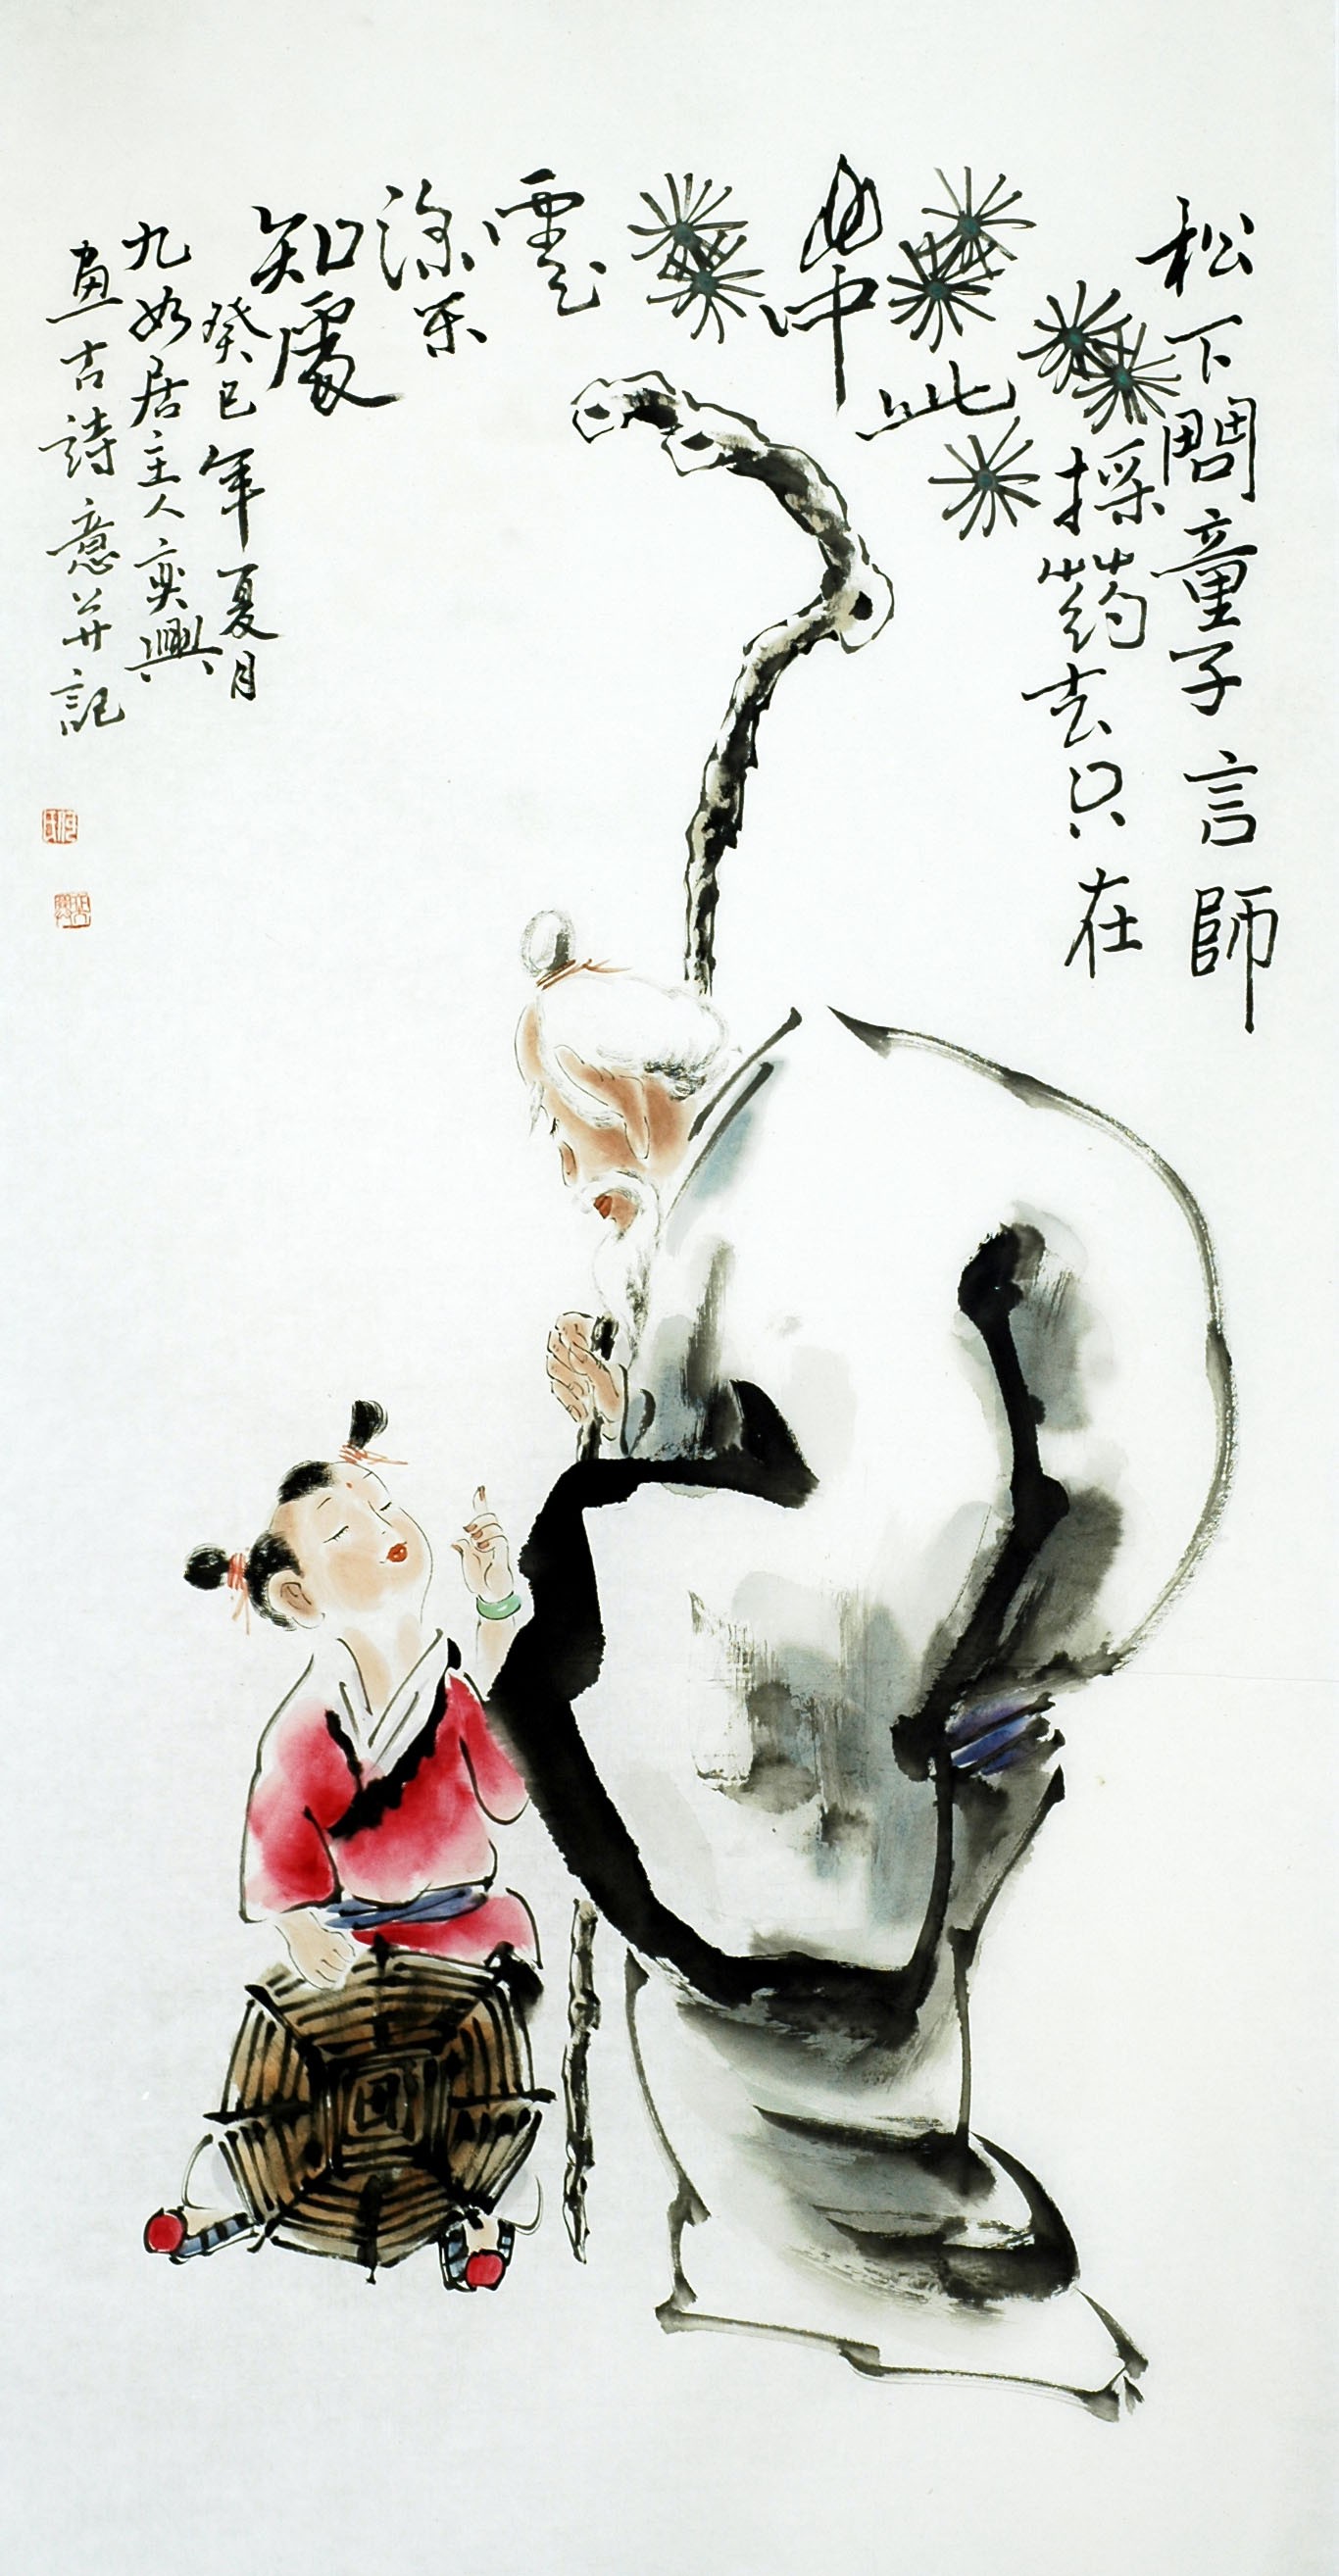 松下問童子言師
採葯去只在
此
山中
雲
深不
知處
癸巳年夏月
九如居主人奕興
畫古詩意并記